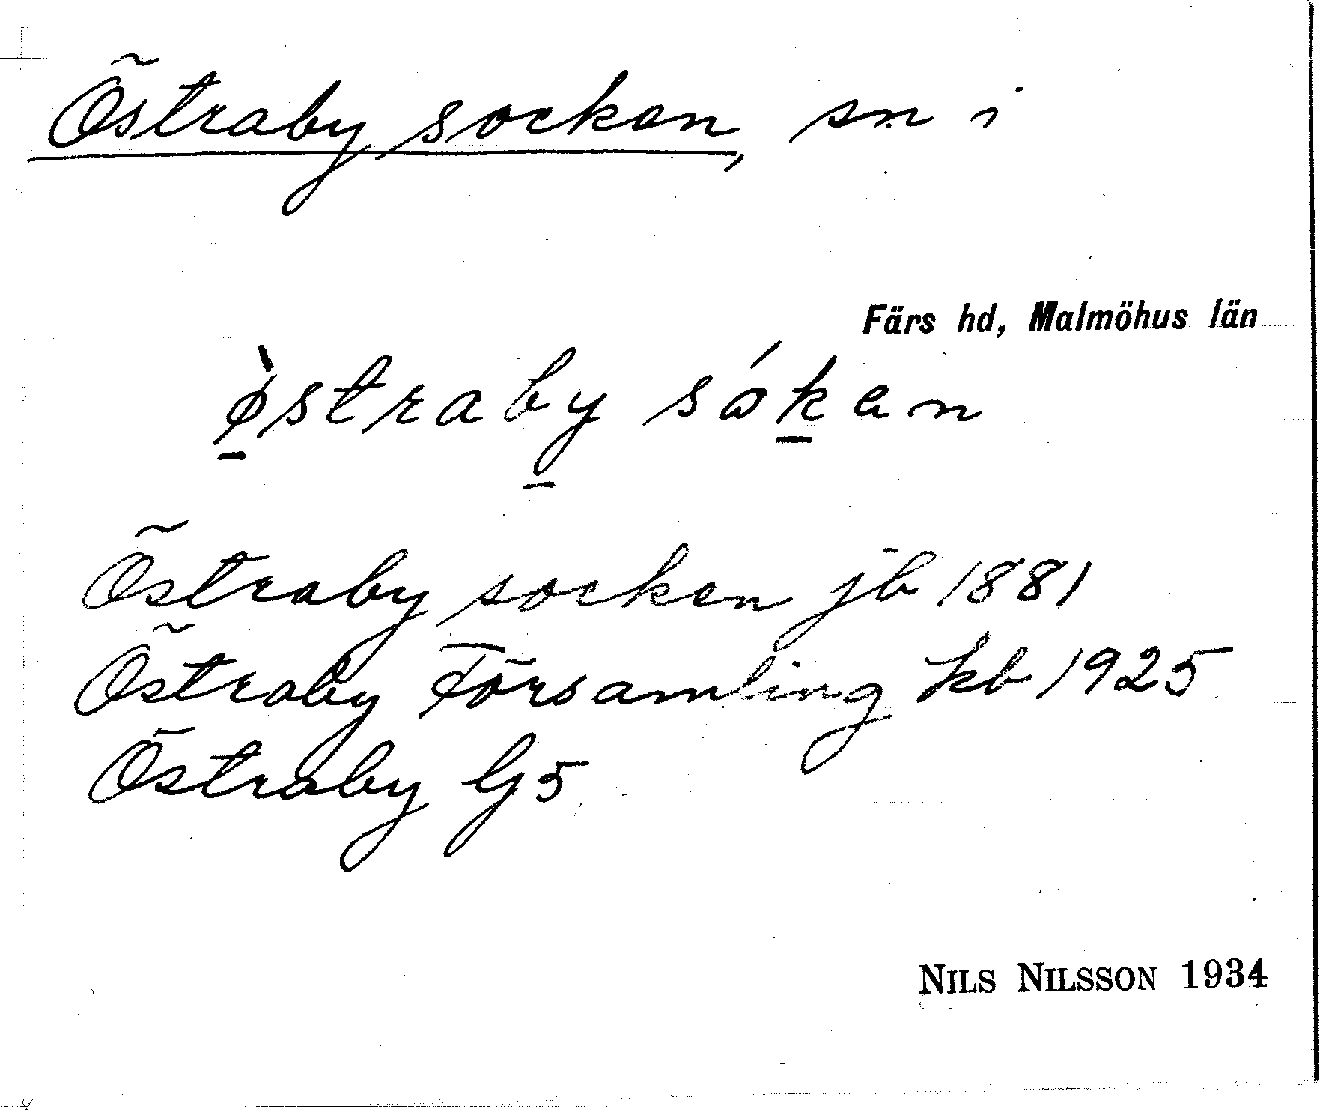 Östraby socken, sn i
Färs hd, Malmöhus län
ø̀straby sókan
Östraby socken jb 1881
Östraby Församling kb 1925
Östraby G5
NILS NILSSON 1934